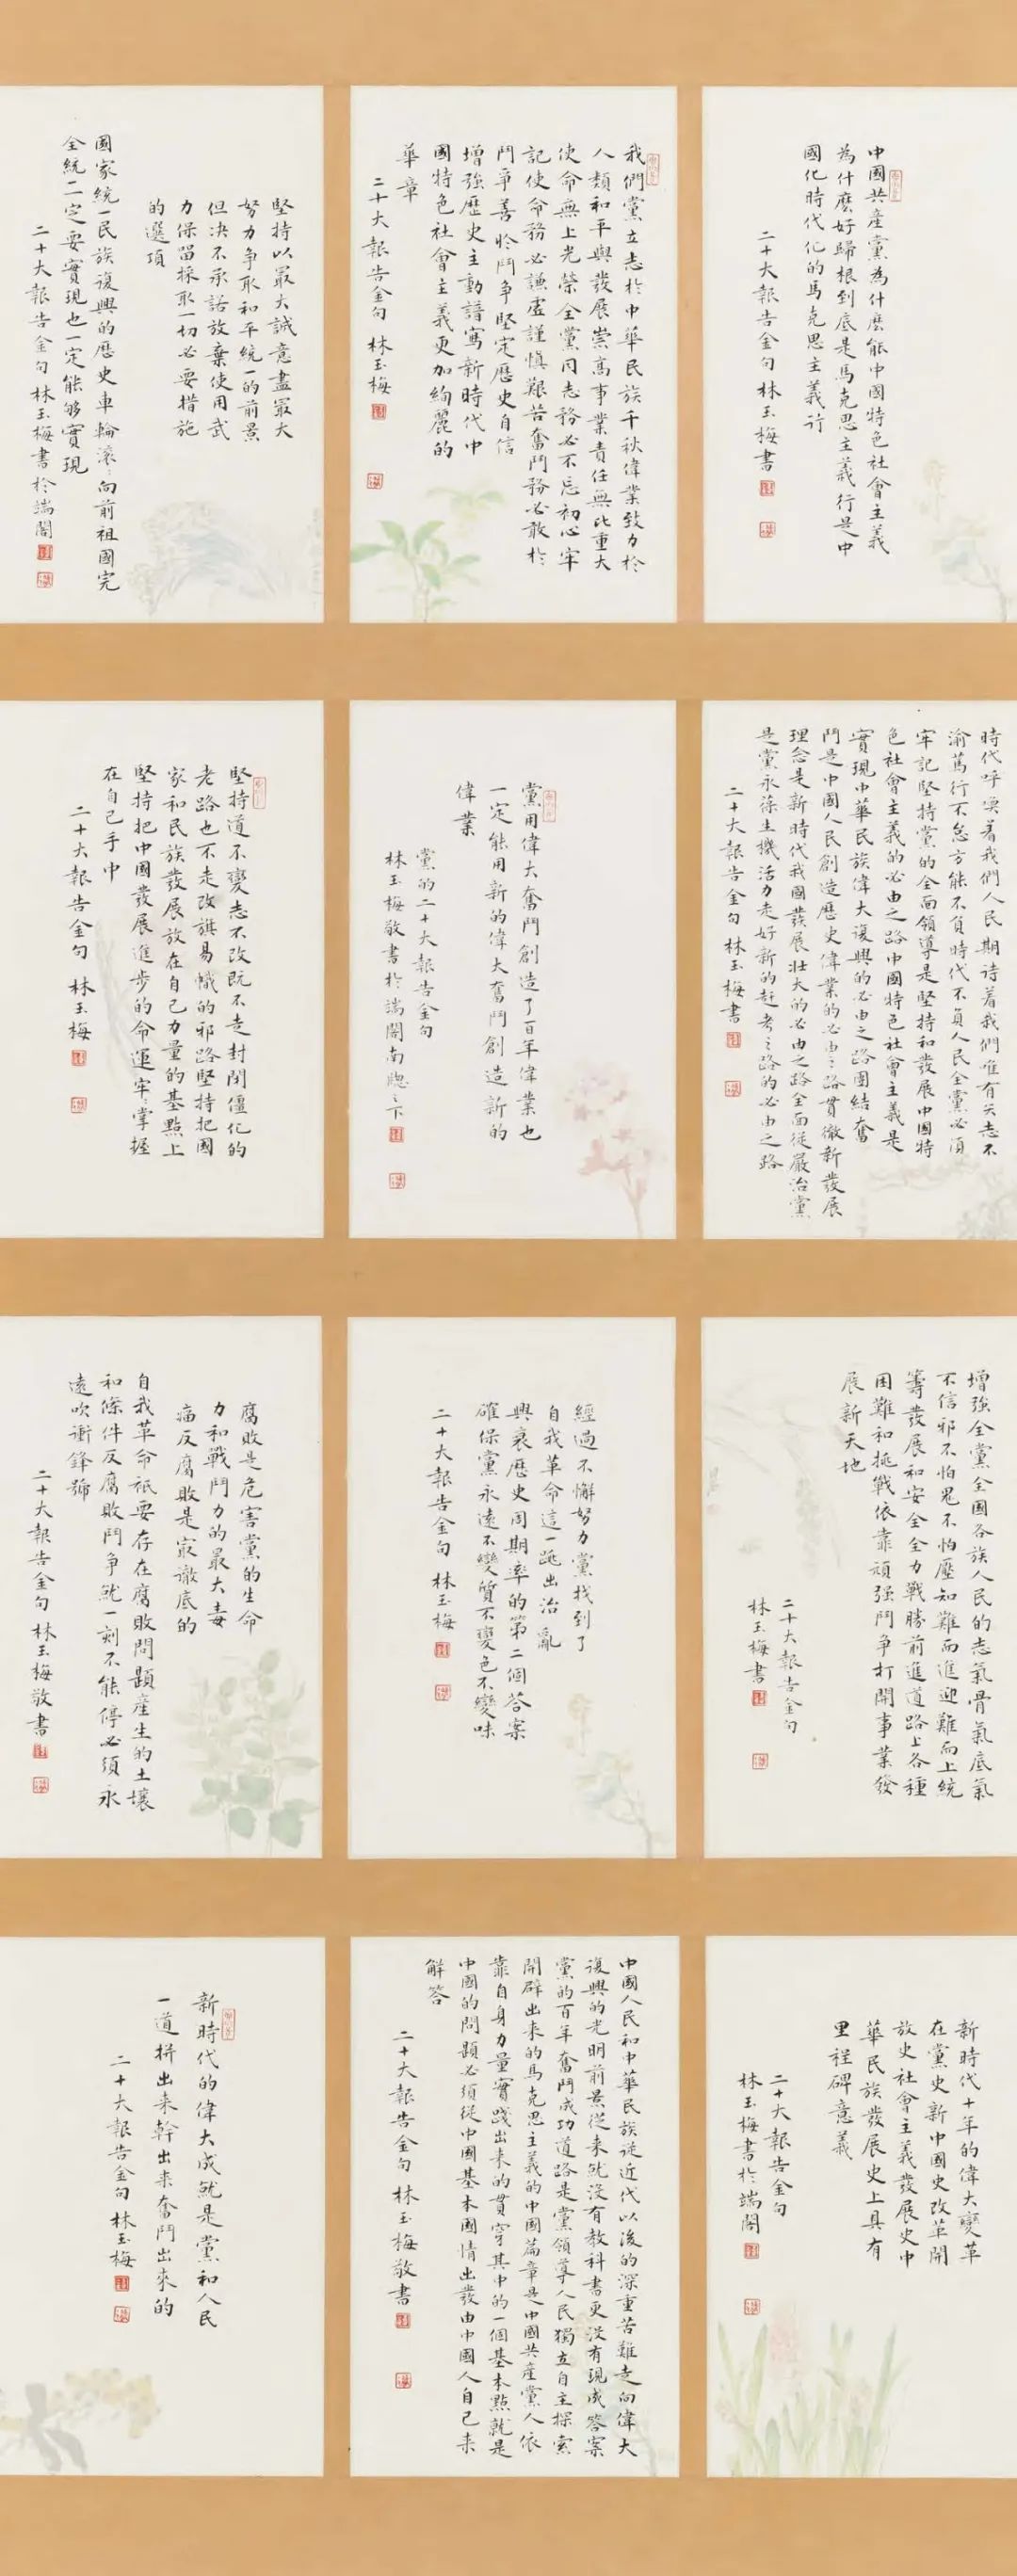 中國共產黨為什麼能中國特色社會主義
為什麼好歸根到底是馬克思主義行是中
國化時代化的馬克思主義行
二十大報告金句 林玉梅書
我們黨立志於中華民族千秋偉業致力於
人類和平與發展崇高事業責任無比重大
使命無上光榮全黨同志務必不忘初心牢
記使命務必謙虛謹慎艱苦奮鬥務必敢於
鬥爭善於鬥爭堅定歷史自信
增強歷史主動譜寫新時代中
國特色社會主義更加絢麗的
華章
二十大報告金句 林玉梅
堅持以最大誠意盡最大
努力爭取和平統一的前景
但決不承諾放棄使用武
力保留採取一切必要措施
的選項
國家統一民族復興的歷史車輪滾〻向前祖國完
全統一一定要實現也一定能夠實現
二十大報告金句 林玉梅書於端閣
時代呼喚着我們人民期待着我們唯有矢志不
渝篤行不怠方能不負時代不負人民全黨必須
牢記堅持黨的全面領導是堅持和發展中國特
色社會主義的必由之路中國特色社會主義是
實現中華民族偉大復興的必由之路團結奮
鬥是中國人民創造歷史偉業的必由之路貫徹新發展
理念是新時代我國發展壯大的必由之路全面從嚴治黨
是黨永葆生機活力走好新的赶考之路的必由之路
二十大報告金句 林玉梅書
黨用偉大奮鬥創造了百年偉業也
一定能用新的偉大奮鬥創造新的
偉業
黨的二十大報告金句
林玉梅敬書於端閣南牕之下
堅持道不變志不改既不走封閉僵化的
老路也不走改旗易幟的邪路堅持把國
家和民族發展放在自己力量的基點上
堅持把中國發展進步的命運牢〻掌握
在自己手中
二十大報告金句 林玉梅
增強全黨全國各族人民的志氣骨氣底氣
不信邪不怕鬼不怕壓知難而進迎難而上統
籌發展和安全全力戰勝前進道路上各種
困難和挑戰依靠頑強鬥爭打開事業發
展新天地
二十大報告金句
林玉梅書
經過不懈努力黨找到了
自我革命這一跳出治亂
興衰歷史周期率的第二個答案
確保黨永遠不變質不變色不變味
二十大報告金句 林玉梅
腐敗是危害黨的生命
力和戰鬥力的最大毒
瘤反腐敗是最徹底的
自我革命衹要存在腐敗問題產生的土壤
和條件反腐敗鬥爭就一刻不能停必須永
遠吹衝鋒號
二十大報告金句 林玉梅敬書
新時代十年的偉大變革
在黨史新中國史改革開
放史社會主義發展史中
華民族發展史上具有
里程碑意義
二十大報告金句
林玉梅書於端閣
中國人民和中華民族從近代以後的深重苦難走向偉大
復興的光明前景從來就沒有教科書更沒有現成答案
黨的百年奮鬥成功道路是黨領導人民獨立自主探索
開辟出來的馬克思主義的中國篇章是中國共產黨人依
靠自身力量實踐出來的貫穿其中的一個基本點就是
中國的問題必須從中國基本國情出發由中國人自己來
解答
二十大報告金句 林玉梅敬書
新時代的偉大成就是黨和人民
一道拼出來幹出來奮鬥出來的
二十大報告金句 林玉梅